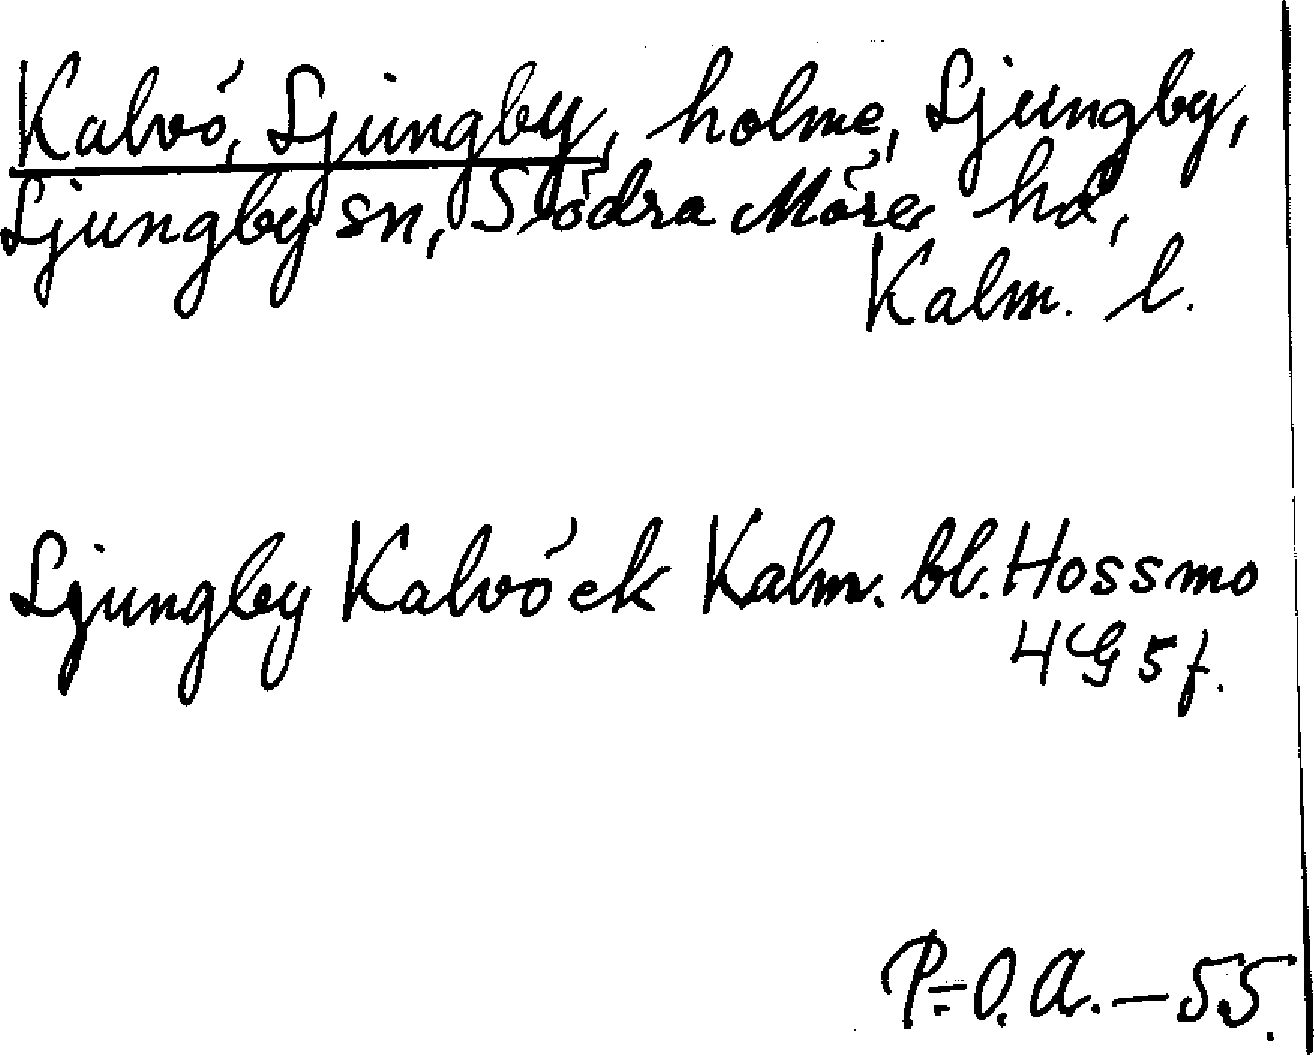 Kalvö, Ljungby, holme, Ljungby,
Ljungby sn, Södra Möre hd,
Kalm. l.
Ljungby Kalvö ek Kalm. bl. Hossmo
4G5f.
P.-O. A. — 55.